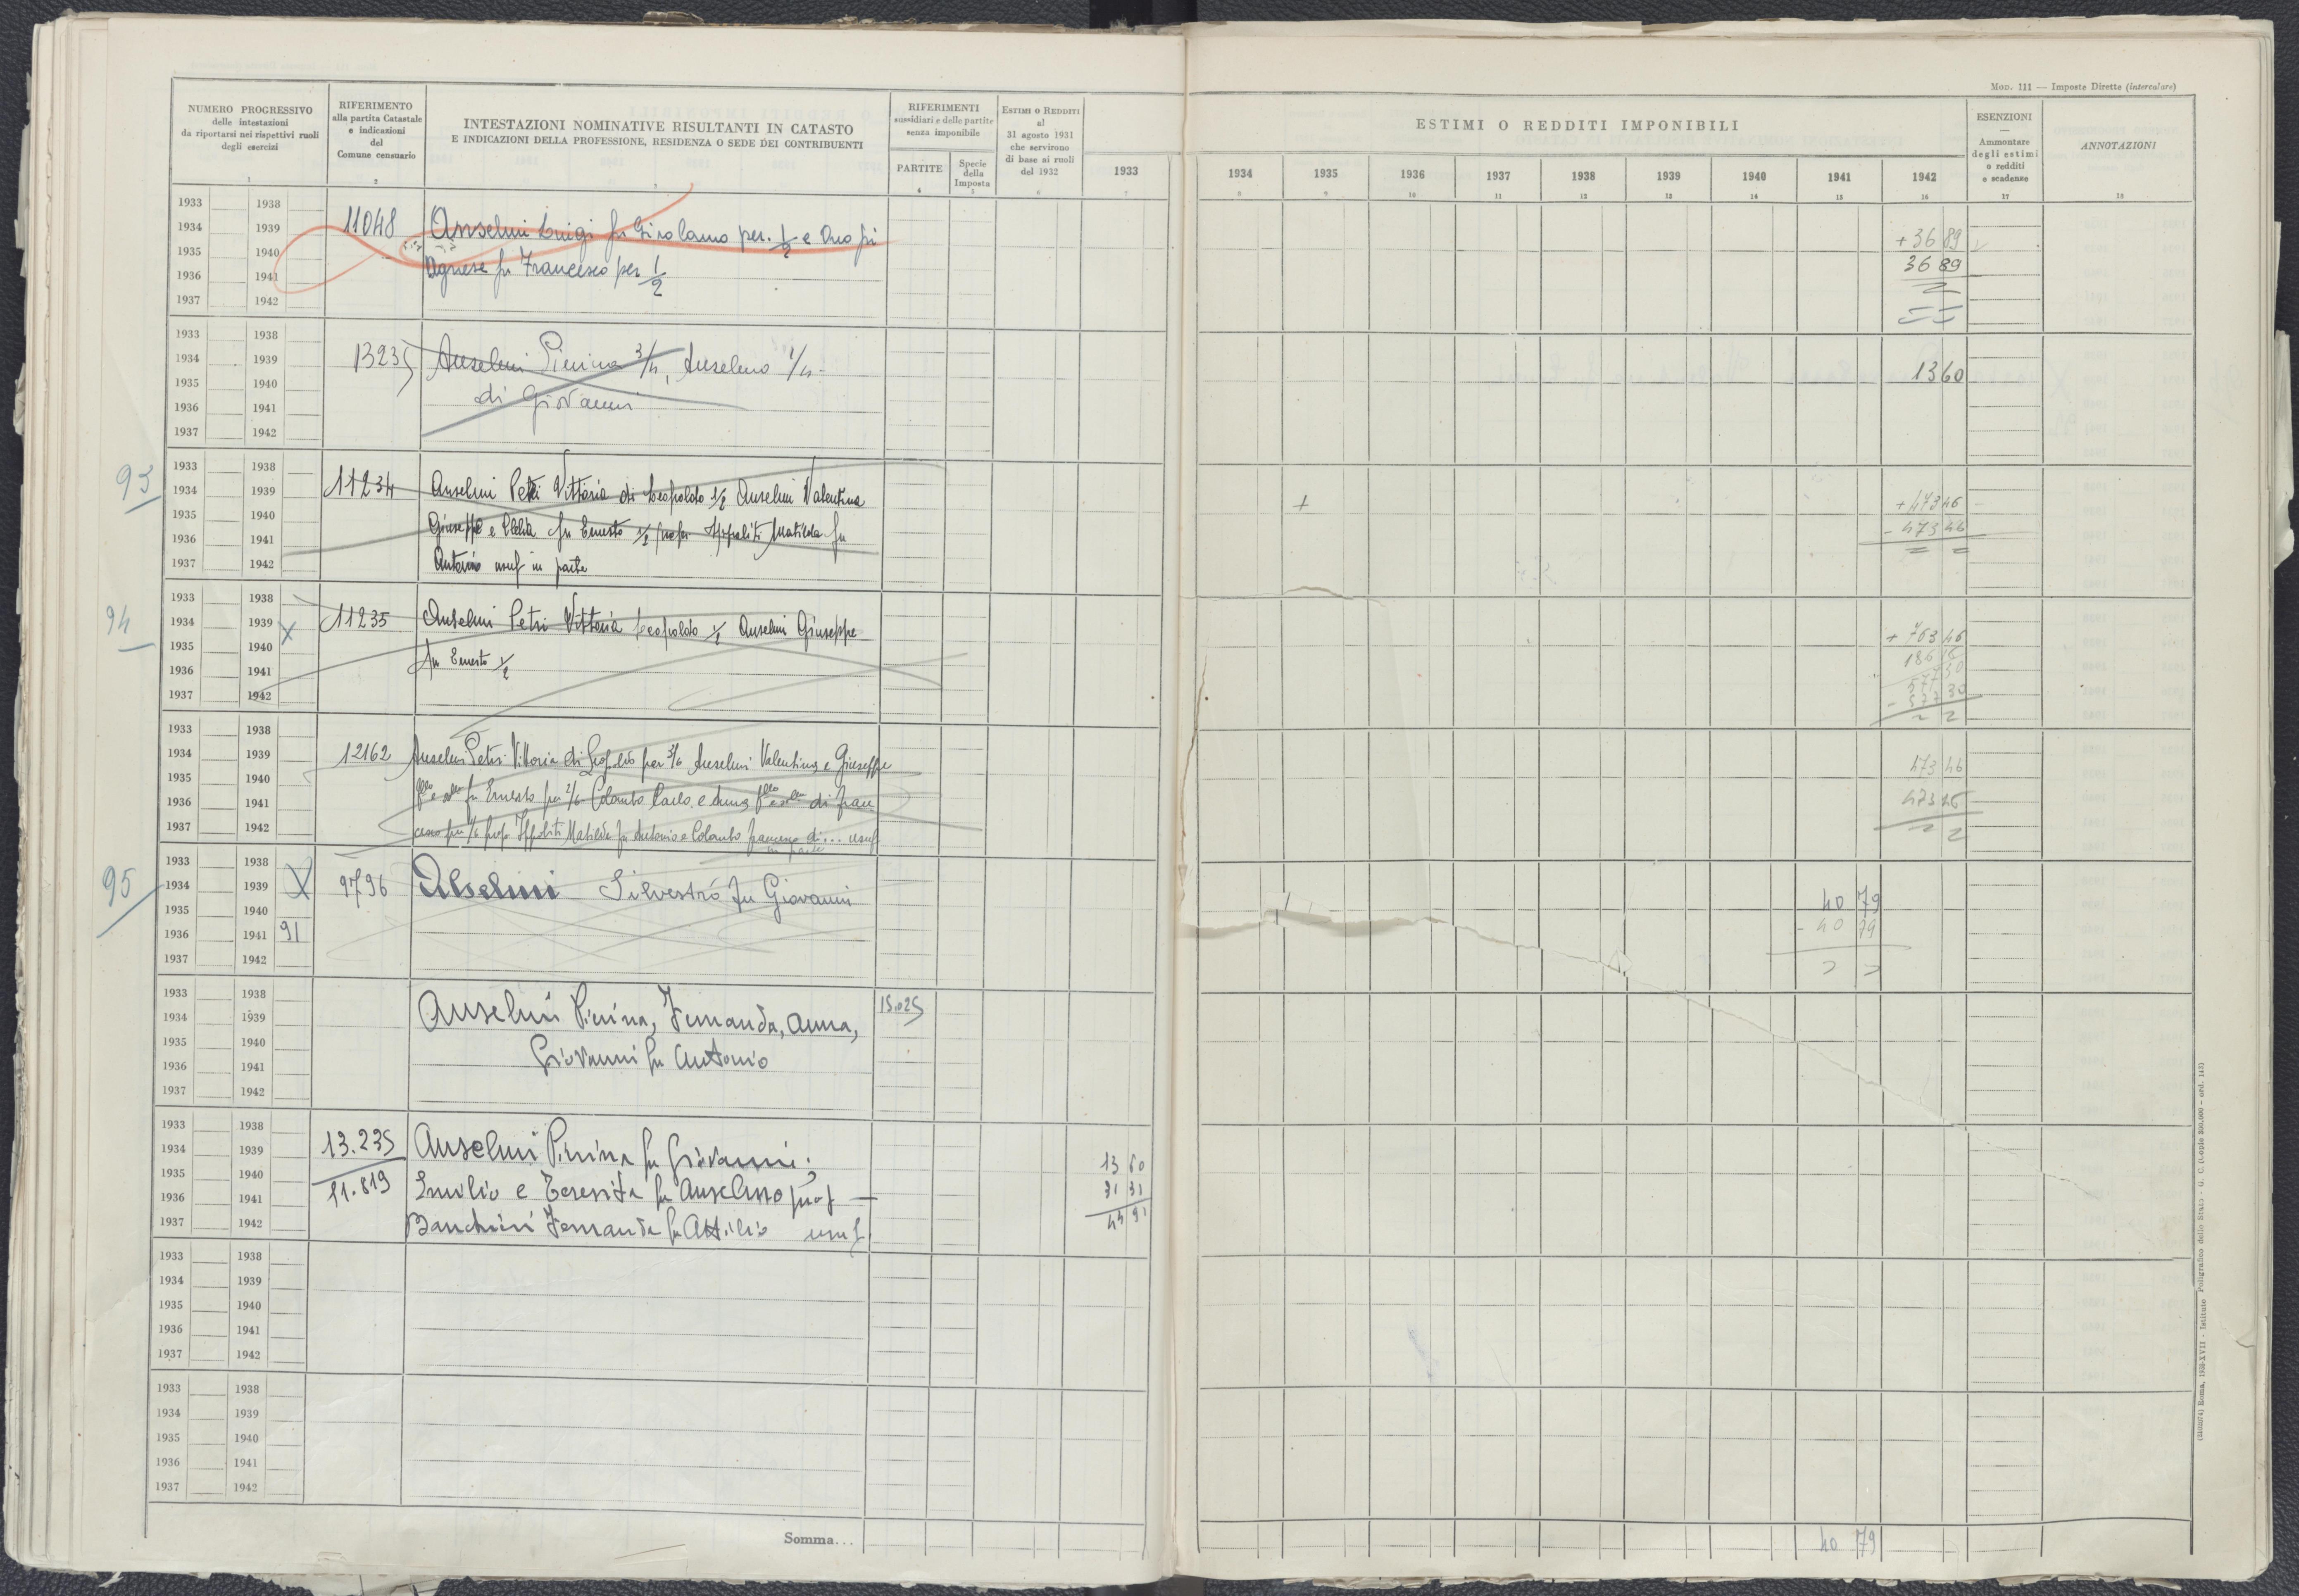 Mod. 111 — Imposte Dirette (intercalare)
NUMERO PROGRESSIVO
delle intestazioni
da riportarsi nei rispettivi ruoli
degli esercizi
1
RIFERIMENTO
alla partita Catastale
e indicazioni
del
Comune censuario
2
INTESTAZIONI NOMINATIVE RISULTANTI IN CATASTO
E INDICAZIONI DELLA PROFESSIONE, RESIDENZA O SEDE DEI CONTRIBUENTI
3
RIFERIMENTI
sussidiari e delle partite
senza imponibile
PARTITE
4
Specie
della
Imposta
5
Estimi o Redditi
al
31 agosto 1931
che servirono
di base ai ruoli
del 1932
6
ESTIMI O REDDITI IMPONIBILI
1933
7
1934
8
1935
9
1936
10
1937
11
1938
12
1939
13
1940
14
1941
15
1942
16
ESENZIONI
—
Ammontare
degli estimi
o redditi
e scadenze
17
ANNOTAZIONI
18
1933 1938
1934 1939
1935 1940
1936 1941
1937 1942
11048
Anselmi Luigi fu Girolamo per 1/2 e
Agnese fu Francesco per 1/2
+ 36 89
36 89
1933 1938
1934 1939
1935 1940
1936 1941
1937 1942
13235
Anselmi Pierina 3/4, Anselmo 1/4
di Giovanni
13 60
93
1933 1938
1934 1939
1935 1940
1936 1941
1937 1942
11234
Anselmi Petri Vittoria di Leopoldo 1/2 Anselmi Valentina
Giuseppe e Clelia fu Ernesto 1/2 prop Ippoliti Matilda fu
Antonio usuf in parte
+
+ 473 46
- 473 46
94
1933 1938
1934 1939 X
1935 1940
1936 1941
1937 1942
11235
Anselmi Petri Vittoria Leopoldo 1/2 Anselmi Giuseppe
fu Ernesto 1/2
+ 763 46
186 16
577 30
- 577 30
1933 1938
1934 1939
1935 1940
1936 1941
1937 1942
12162
Anselmi Petri Vittoria di Leopoldo per 3/6 Anselmi Valentina e Giuseppe
fu Ernesto per 2/6 Colombo Carlo e Anna di Fran
cesco per 1/6 prop Ippoliti Matilde fu Antonio e Colombo Francesco di... usuf
in parte
473 46
473 46
95
1933 1938
1934 1939 X
1935 1940
1936 1941 91
1937 1942
9796
Anselmi Silvestro fu Giovanni
40 79
- 40 79
1933 1938
1934 1939
1935 1940
1936 1941
1937 1942
Anselmi Pierina, Fernanda, Anna,
Giovanni fu Antonio
15.025
1933 1938
1934 1939
1935 1940
1936 1941
1937 1942
13.235
11.819
Anselmi Pierina fu Giovanni;
Emilio e Teresita fu Anselmo prop —
Banchini Fernanda fu Attilio usuf
13 60
31 31
44 91
1933 1938
1934 1939
1935 1940
1936 1941
1937 1942
1933 1938
1934 1939
1935 1940
1936 1941
1937 1942
Somma...
40 79